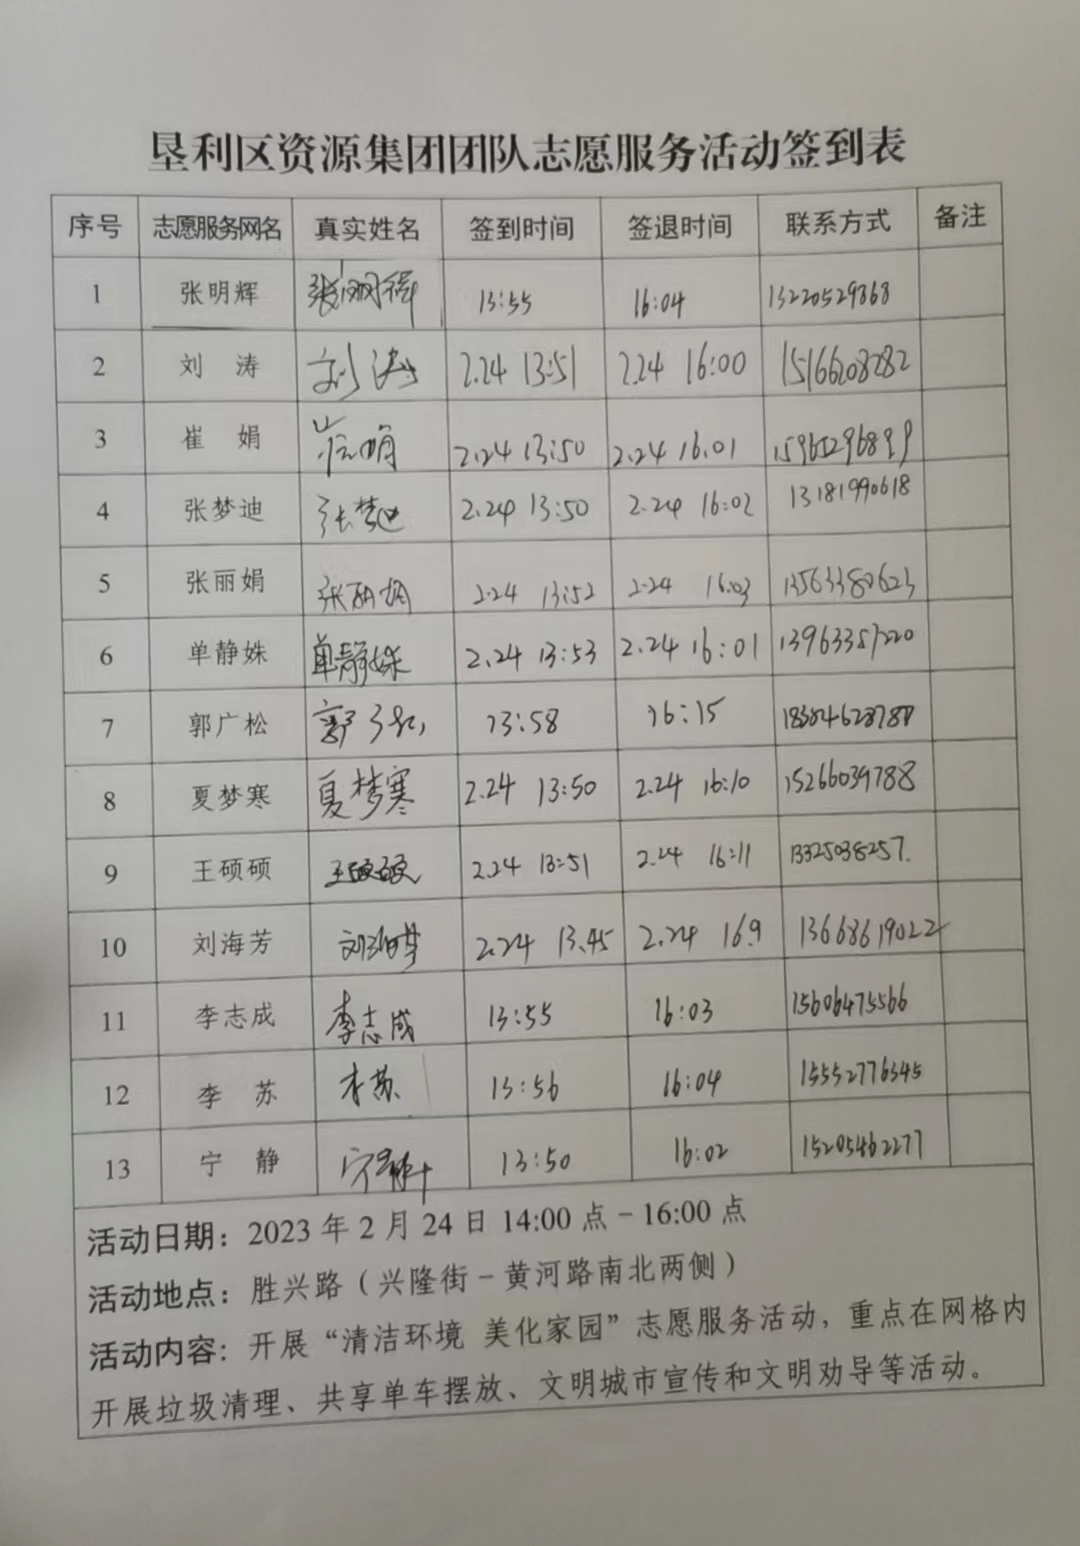 垦利区资源集团团队志愿服务活动签到表
序号 志愿服务网名 真实姓名 签到时间 签退时间 联系方式 备注
1 张明辉 张明辉 13:55 16:04 13220529868
2 刘 涛 刘涛 2.24 13:51 2.24 16:00 15166208282
3 崔 娟 崔娟 2.24 13:50 2.24 16.01
4 张梦迪 张梦迪 2.24 13:50 2.24 16:02 13181990618
5 张丽娟 张丽娟 2.24 13:52 2.24 16:03 13563380623
6 单静姝 单静姝 2.24 13:53 2.24 16:01
7 郭广松 郭广松 13:58 16:15
8 夏梦寒 夏梦寒 2.24 13:50 2.24 16:10 15266039788
9 王硕硕 王硕硕 2.24 13:51 2.24 16:11 13325038257.
10 刘海芳 刘海芳 2.24 13.45 2.24 16.9 13668619022
11 李志成 李志成 13:55 16:03 15606475566
12 李 苏 李苏 13:56 16:04 15552776345
13 宁 静 宁静 13:50 16:02 15205462277
活动日期：2023 年 2 月 24 日 14:00 点－16:00 点
活动地点：胜兴路（兴隆街－黄河路南北两侧）
活动内容：开展“清洁环境 美化家园”志愿服务活动，重点在网格内
开展垃圾清理、共享单车摆放、文明城市宣传和文明劝导等活动。